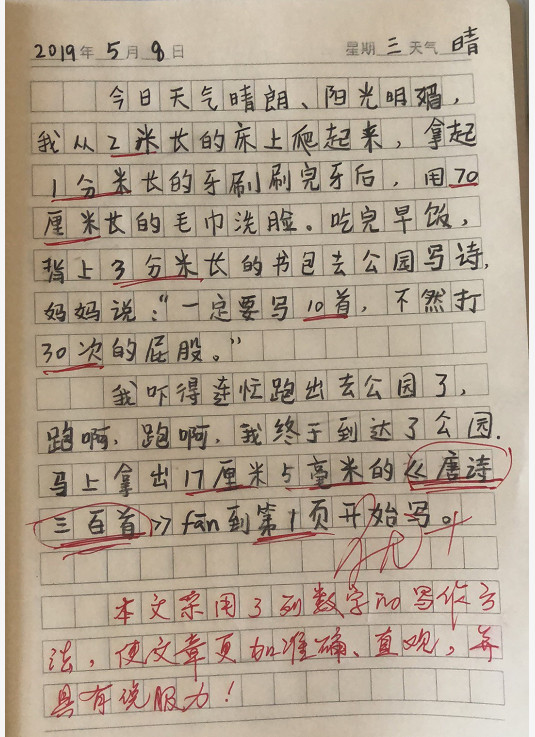 2019年5月8日 星期三 天气 晴
今日天气晴朗、阳光明媚，
我从2米长的床上爬起来，拿起
1分米长的牙刷刷完牙后，用70
厘米长的毛巾洗脸。吃完早饭，
背上3分米长的书包去公园写诗，
妈妈说：“一定要写10首，不然打
30次的屁股。”
我吓得连忙跑出去公园了，
跑啊，跑啊，我终于到达了公园.
马上拿出17厘米5毫米的《唐诗
三百首》fān到第1页开始写。
优+
本文采用了列数字的写作方
法，使文章更加准确、直观，并
具有说服力！